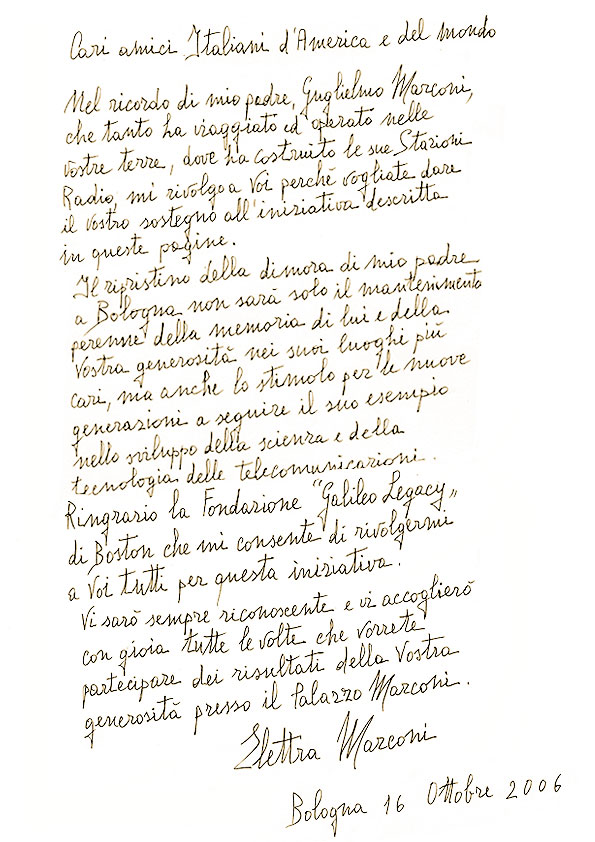 Cari amici Italiani d'America e del mondo
Nel ricordo di mio padre, Guglielmo Marconi,
che tanto ha viaggiato ed operato nelle
vostre terre, dove ha costruito le sue Stazioni
Radio, mi rivolgo a Voi perchè vogliate dare
il vostro sostegno all'iniziativa descritta
in queste pagine.
Il ripristino della dimora di mio padre
a Bologna non sarà solo il mantenimento
perenne della memoria di lui e della
Vostra generosità nei suoi luoghi più
cari, ma anche lo stimolo per le nuove
generazioni a seguire il suo esempio
nello sviluppo della scienza e della
tecnologia delle telecomunicazioni.
Ringrazio la Fondazione "Galileo Legacy"
di Boston che mi consente di rivolgermi
a Voi tutti per questa iniziativa.
Vi sarò sempre riconoscente e vi accoglierò
con gioia tutte le volte che vorrete
partecipare dei risultati della Vostra
generosità presso il Palazzo Marconi.
Elettra Marconi
Bologna 16 Ottobre 2006